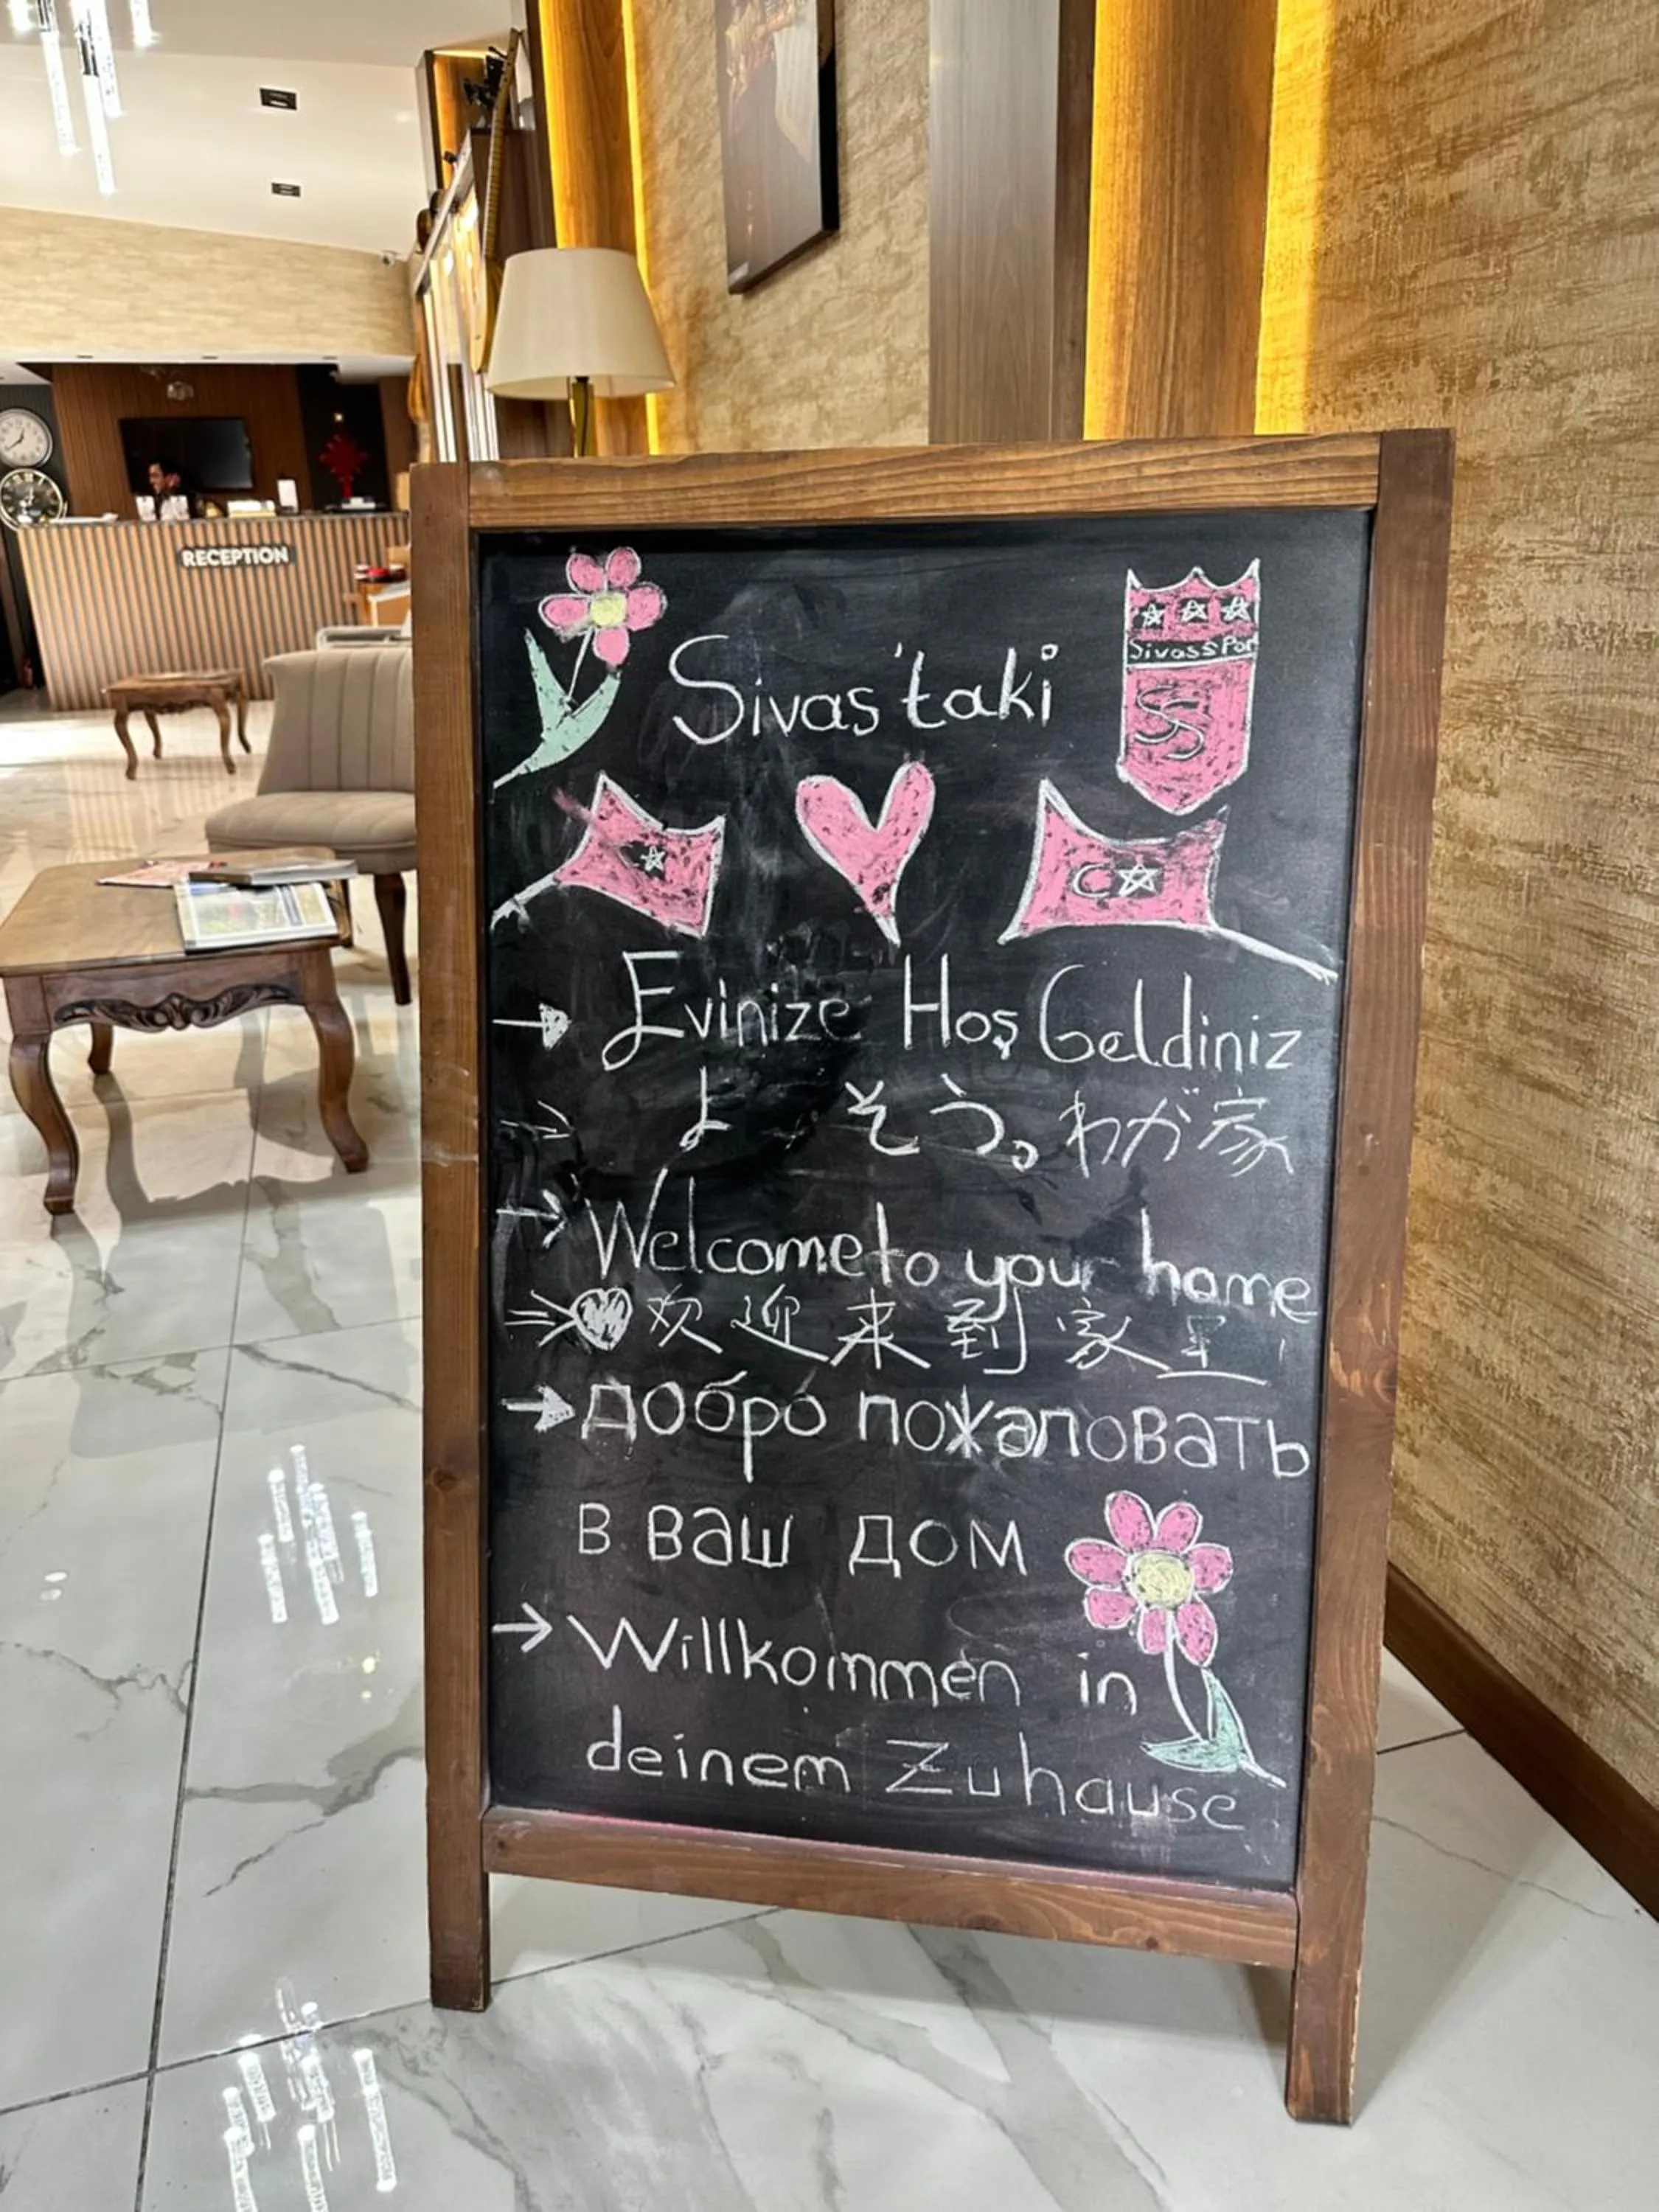 RECEPTION
Sivas'taki
SivassPor
S
Evinize Hoş Geldiniz
よ そう。わが家
Welcome to your home
欢迎来到家里
добро пожаловать
в ваш дом
Willkommen in
deinem Zuhause